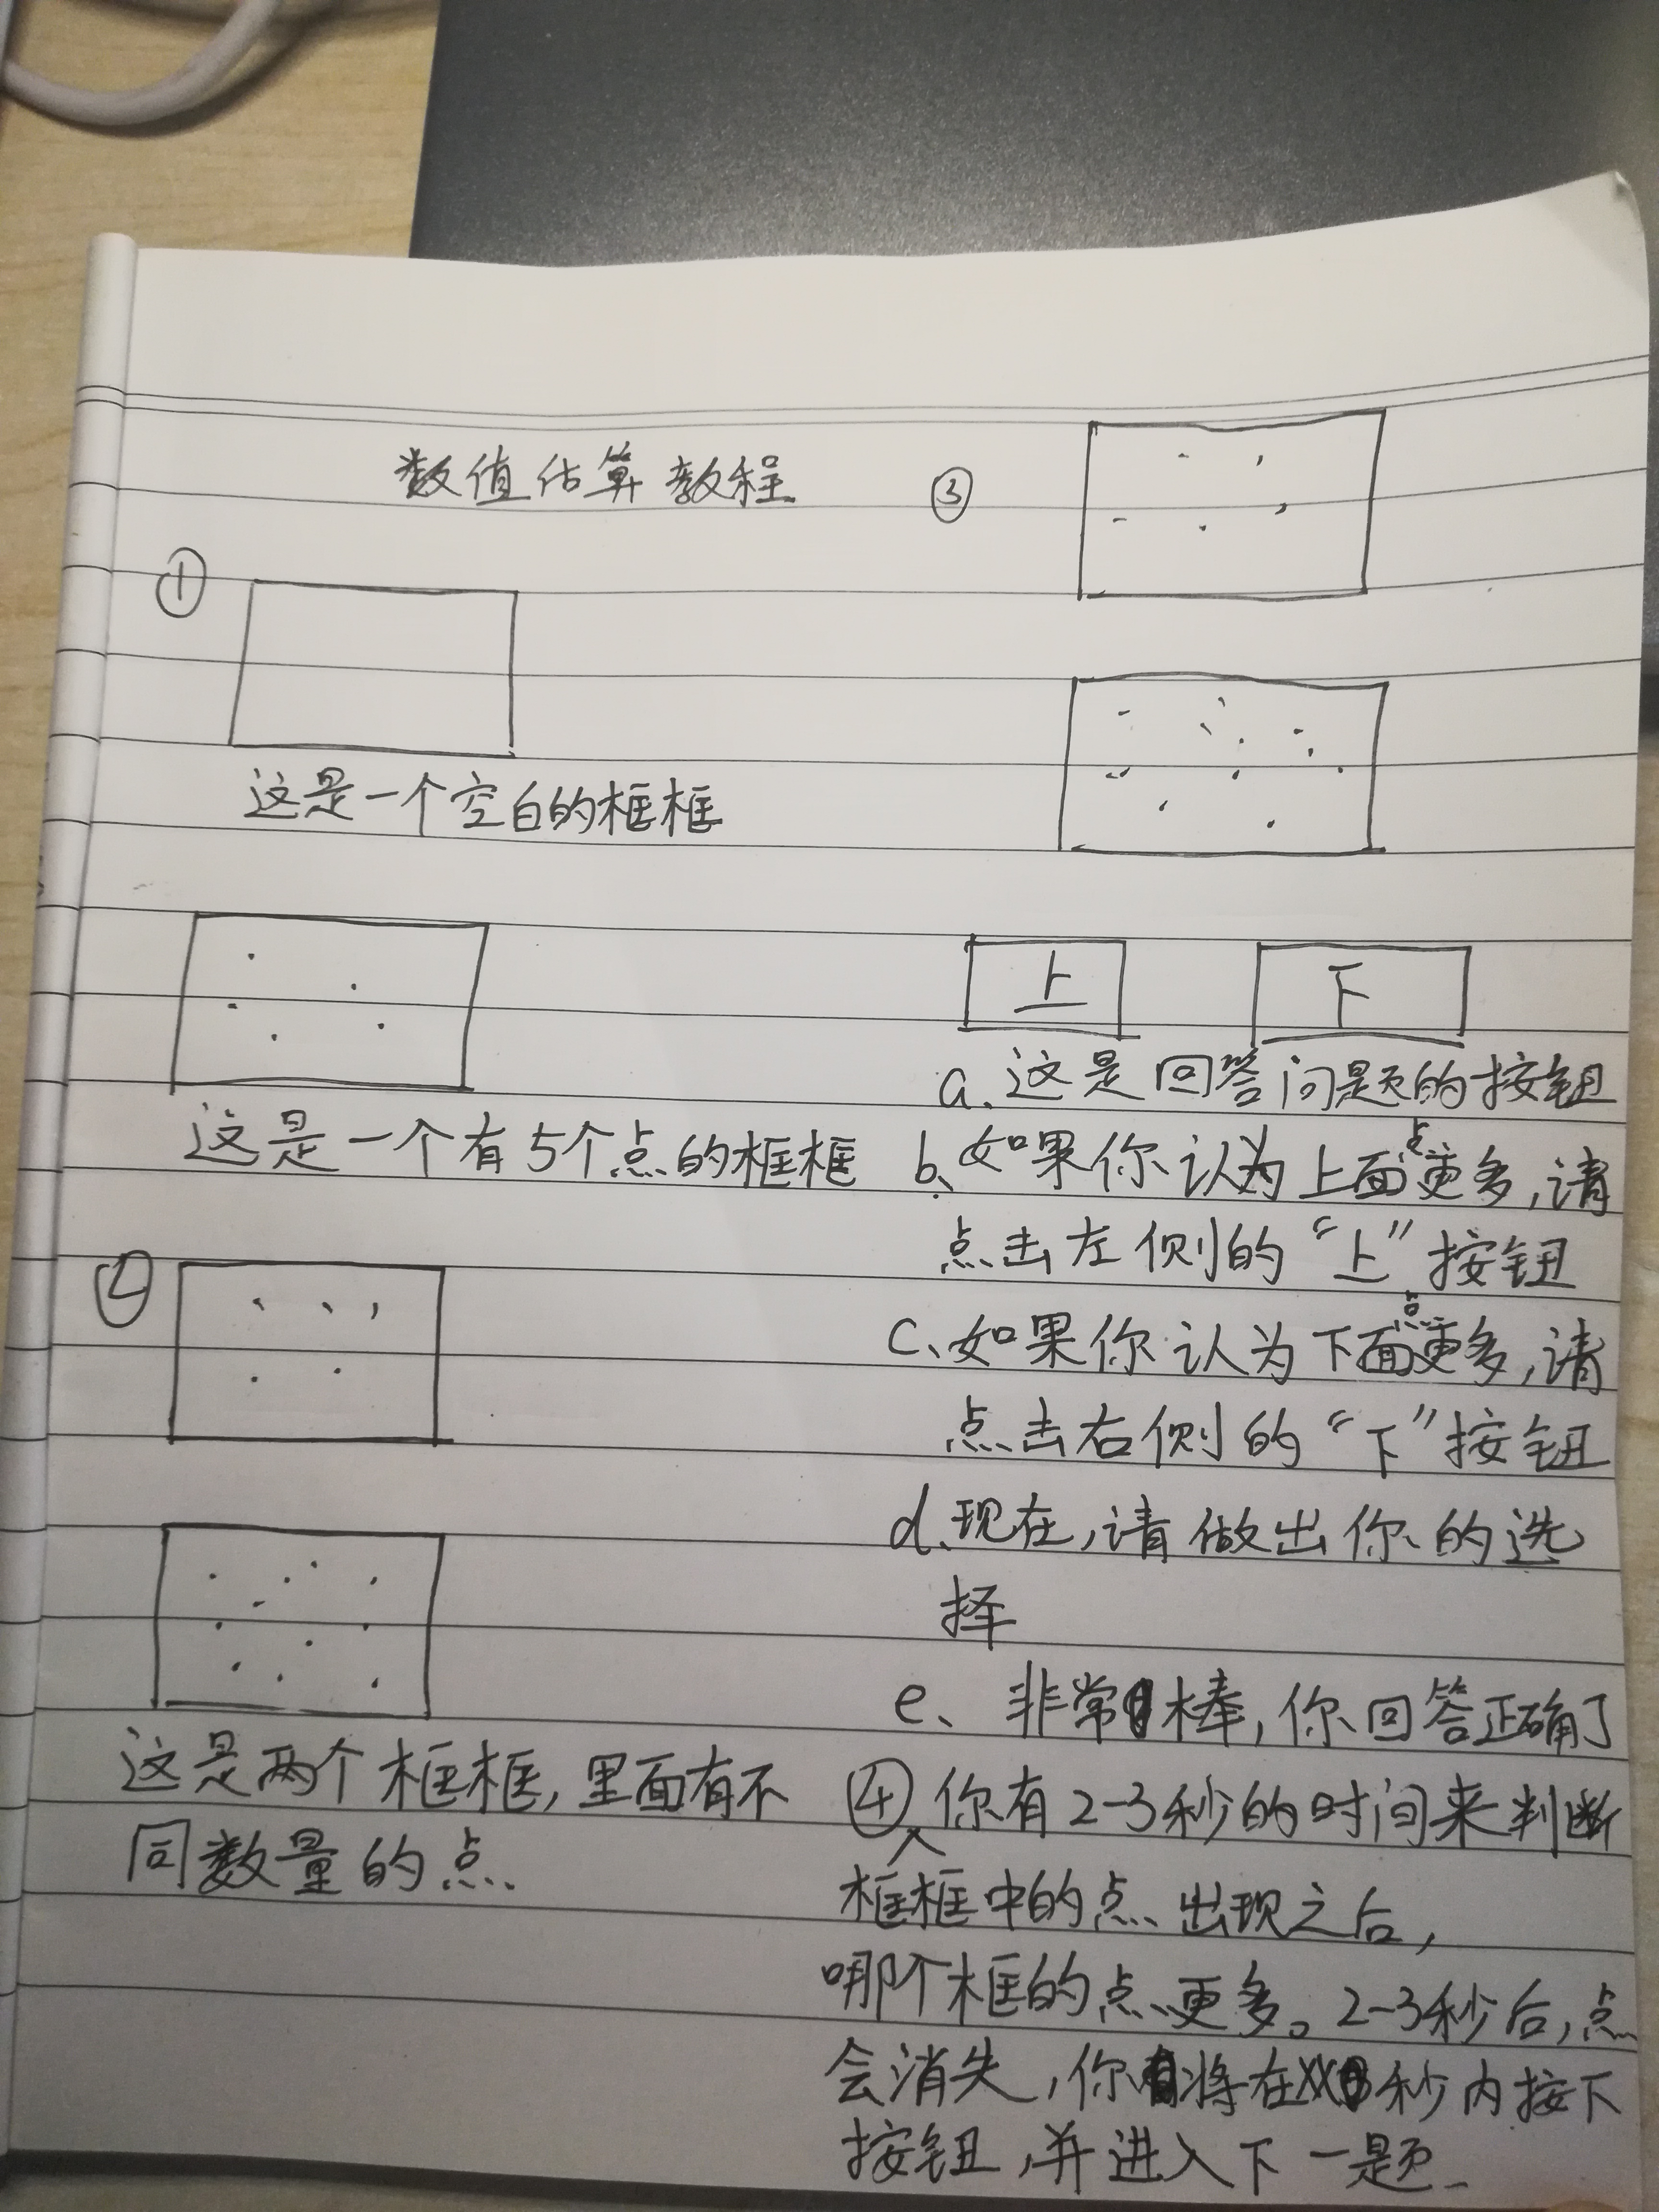 数值估算教程
①
这是一个空白的框框
这是一个有5个点的框框
②
这是两个框框,里面有不
同数量的点.
③
上 下
a、这是回答问题的按钮
b、如果你认为上面点更多,请
点击左侧的“上”按钮
c、如果你认为下面点更多,请
点击右侧的“下”按钮
d、现在,请做出你的选
择
e、非常棒,你回答正确了
④你有2-3秒的时间来判断
框框中的点出现之后,
哪个框的点更多。2-3秒后,点
会消失,你将在XX秒内按下
按钮,并进入下一题.